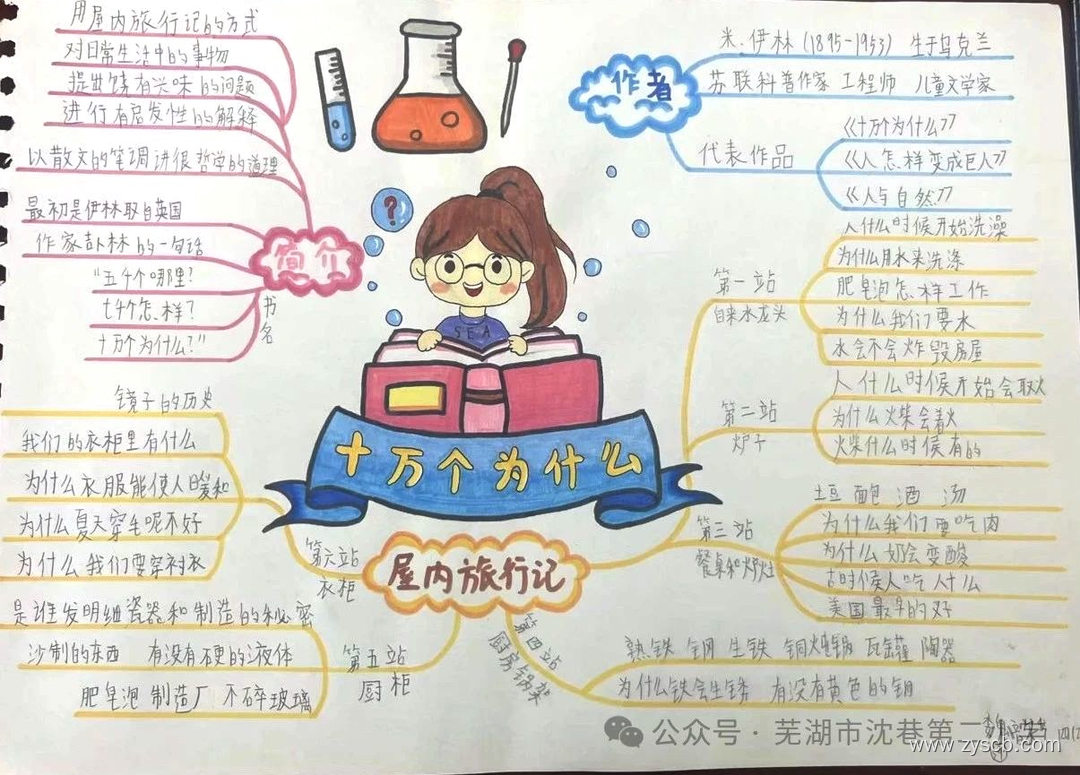 用屋内旅行记的方式
对日常生活中的事物
提出饶有兴味的问题
进行有启发性的解释
以散文的笔调讲很哲学的道理
最初是伊林取自英国
作家卜林的一句话
"五千个哪里?
七千个怎样?
十万个为什么?"
书名
简介
?
SEA
作者
米·伊林(1895-1953) 生于乌克兰
苏联科普作家 工程师 儿童文学家
代表作品
《十万个为什么》
《人怎样变成巨人》
《人与自然》
十万个为什么
屋内旅行记
第一站
自来水龙头
人什么时候开始洗澡
为什么用水来洗涤
肥皂泡怎样工作
为什么我们要水
水会不会炸毁房屋
第二站
炉子
人什么时候开始会取火
为什么火柴会着火
火柴什么时候有的
第三站
餐桌和炉灶
土豆 酒 汤
为什么我们要吃肉
为什么奶会变酸
古时候人吃什么
美国最早的
第四站
厨房锅架
熟铁 钢 生铁 铜 瓦罐 陶器
为什么铁会生锈 有没有黄色的铜
第五站
厨柜
是谁发明细瓷器和制造的秘密
沙制的东西 有没有硬的液体
肥皂泡制造厂 不碎玻璃
第六站
衣柜
镜子的历史
我们的衣柜里有什么
为什么衣服能使人暖和
为什么夏天穿毛呢不好
为什么我们要穿衬衣
公众号·芜湖市沈巷第二
www.zyscb.com